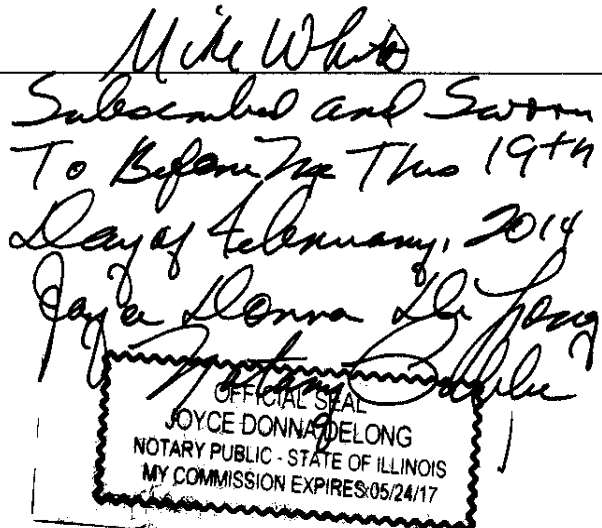 Mike White
Subscribed and Sworn
To Before Me This 19th
Day of February, 2014
Joyce Donna DeLong
Notary Public
OFFICIAL SEAL
JOYCE DONNA DELONG
NOTARY PUBLIC - STATE OF ILLINOIS
MY COMMISSION EXPIRES:05/24/17